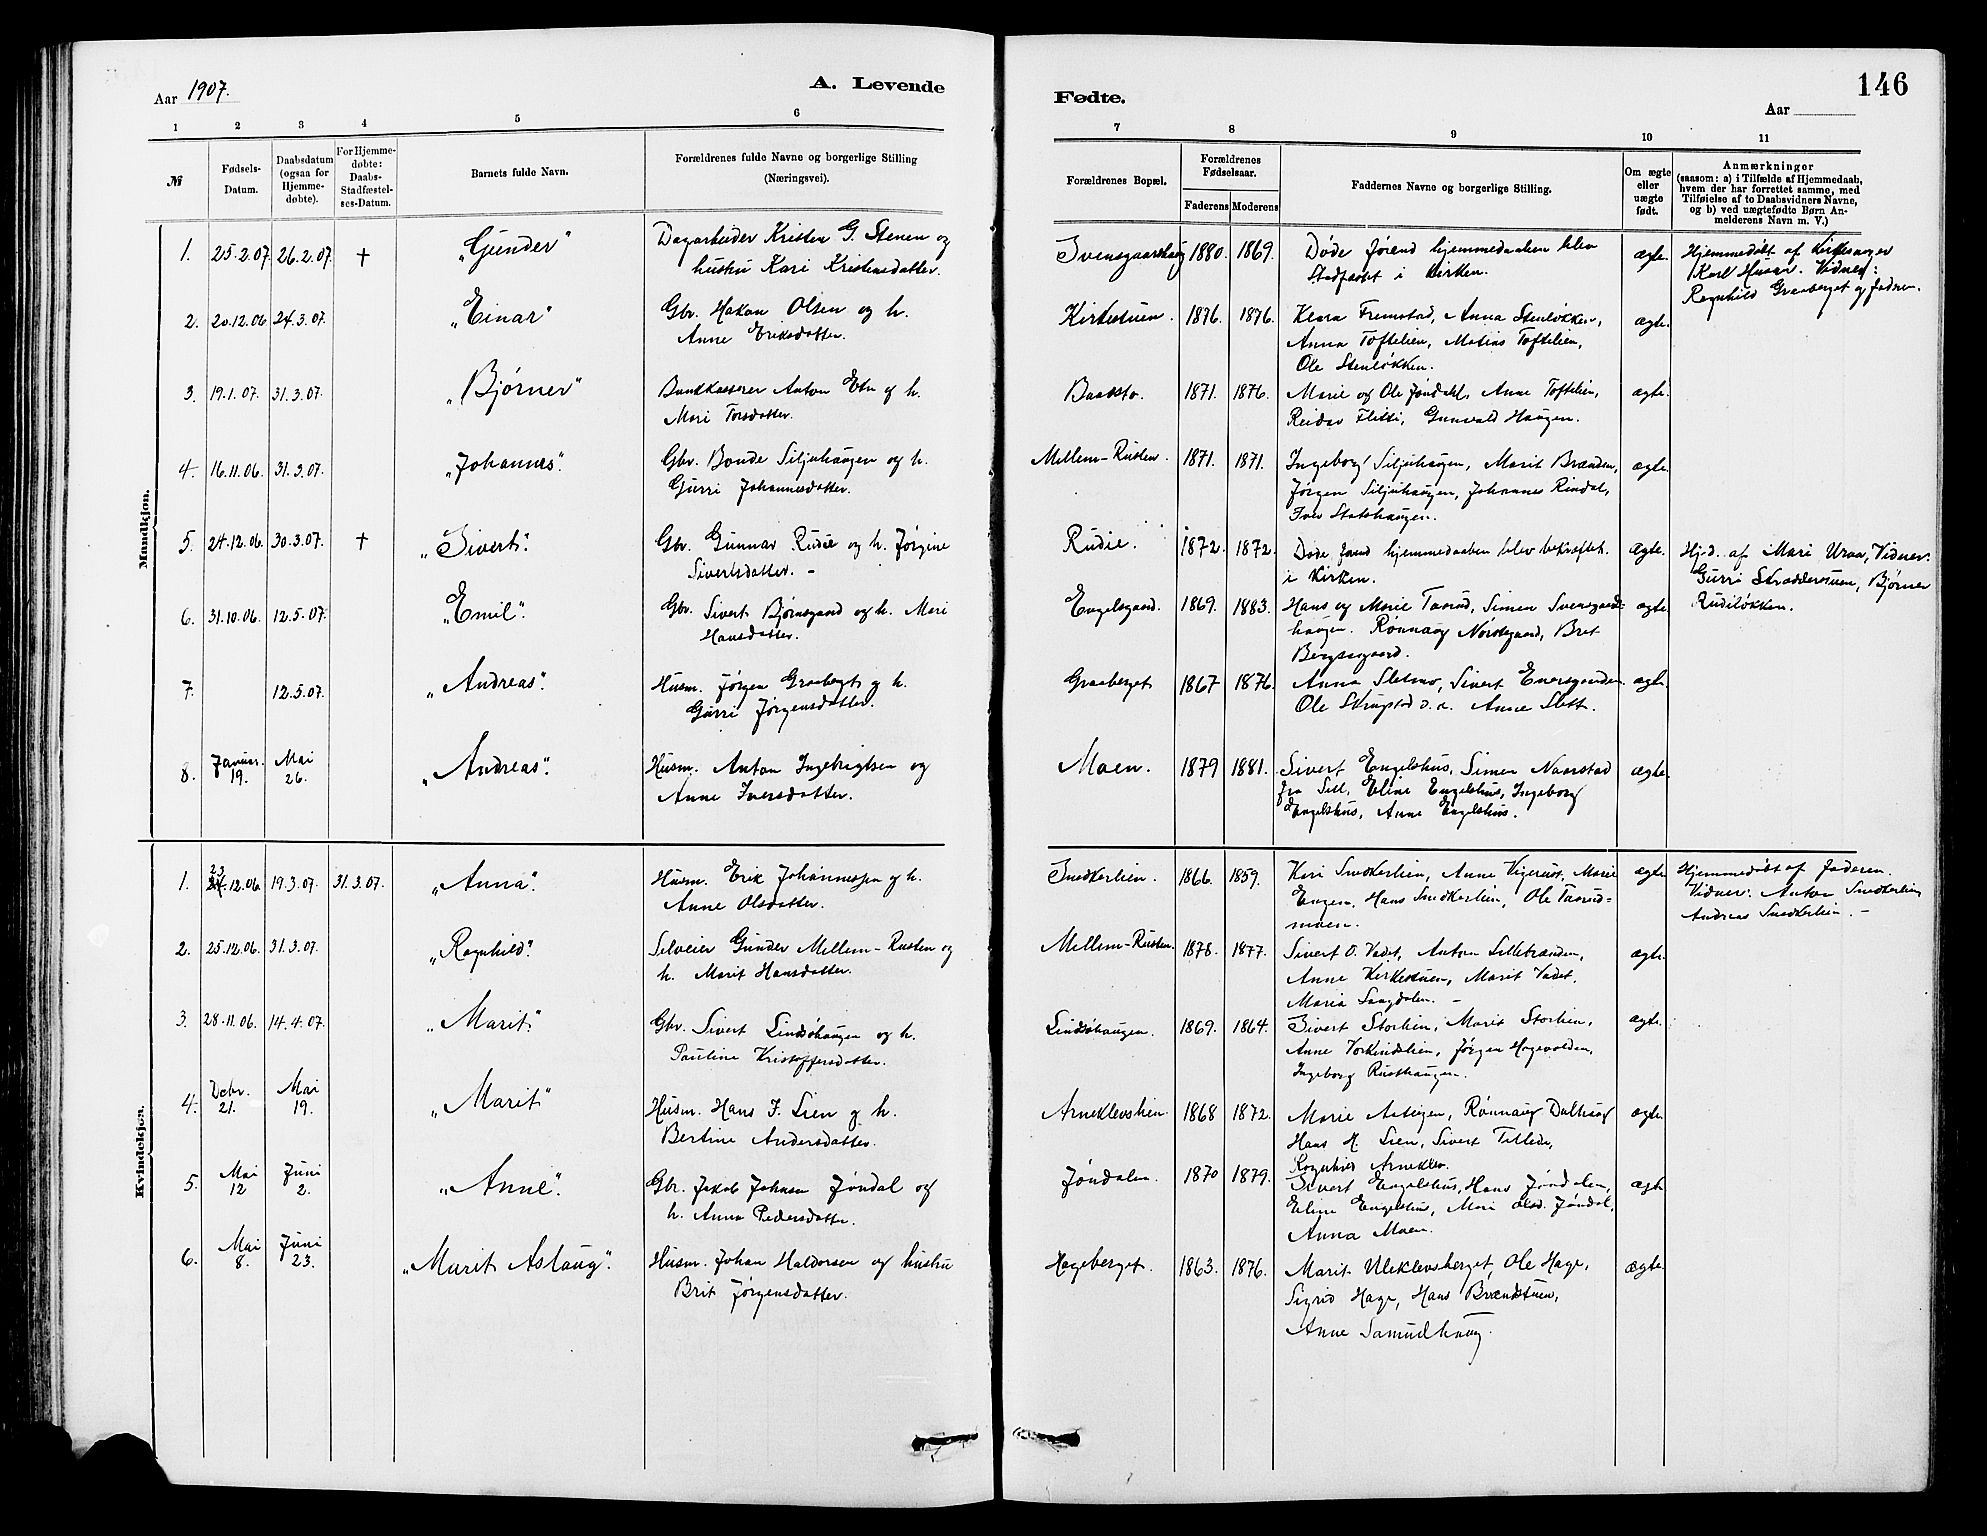 146
Aar 1907.
A. Levende
Fødte.
Aar
1 2 3 4 5 6
7 8 9 10 11
№
Fødsels-
Datum.
Daabsdatum
(ogsaa for
Hjemme-
døbte).
For Hjemme-
døbte:
Daabs-
Stadfæstel-
ses-Datum.
Barnets fulde Navn.
Forældrenes fulde Navne og borgerlige Stilling
(Næringsvei).
Forældrenes Bopæl.
Forældrenes
Fødselsaar.
Faderens Moderens
Faddernes Navne og borgerlige Stilling.
Om ægte
eller
uægte
født.
Anmærkninger
(saasom: a) i Tilfælde af Hjemmedaab,
hvem der har forrettet samme, med
Tilføielse af to Daabsvidners Navne,
og b) ved uægtefødte Børn An-
melderens Navn m. V.)
Mandkjøn.
1. 25.2.07. 26.2.07. † „Gunder" Dagarbeider Kristen G. Stenen og
hustru Kari Kristensdatter.
Svensgaardhaug 1880. 1869. Døde førend hjemmedaaben blev
Stadfæstet i Kirken.
ægte. Hjemmedøbt af Kirkesanger
Karl Husar. Vidner:
Ragnhild Graaberget og faderen.
2. 20.12.06 24.3.07. „Einar" Gbr. Hakon Olsen og h.
Anne Eriksdatter.
Kirkestuen. 1876. 1876. Klara Fremstad, Anna Stenløkken,
Anna Toftelien, Matias Toftelien,
Ole Stenløkken.
ægte.
3. 19.1.07. 31.3.07. „Bjørner" Bankkasserer Anton Etn og h.
Mari Torsdatter.
1871. 1876. Marie og Ole Jøndahl, Anne Toftelien,
Reidar Fletti, Gunvald Haugen.
ægte.
4. 16.11.06. 31.3.07. „Johannes". Gbr. Bonde Siljuhaugen og h.
Gurri Johannesdatter.
Mellem-Rusten. 1871. 1871. Ingeborg Siljuhaugen, Marit Brænden,
Jørgen Siljuhaugen, Johannes Rindal,
Iver Statshaugen.
ægte.
5. 24.12.06. 30.3.07. † „Sivert". Gbr. Gunnar Rudie og h. Jørgine
Sivertsdatter. -
Rudie. 1872. 1872. Døde førend hjemmedaaben blev bekræftet.
i Kirken.
ægte. Hj.d. af Mari Uraa, Vidner:
Gurri Skradderstuen, Bjørner
Rudiløkken.
6. 31.10.06. 12.5.07. „Emil". Gbr. Sivert Bjørnsgaard og h. Mari
Hansdatter.
Engelsgaard. 1869. 1883. Hans og Marie Taarud, Simen Svensgaard-
haugen. Rønnaug Nørstegaard, Brit
Bergsgaard.
ægte.
7. 12.5.07. „Andreas". Husm. Jørgen Graaberget og h.
Gurri Jørgensdatter.
Graaberget 1867 1876. Anna Sletmo, Sivert Enersgaarden
Ole Skrupstad o. a. Anne Slett.
ægte.
8. Januar.
19.
Mai
26.
„Andreas". Husm. Anton Ingebrigtsen og
Anne Iversdatter.
Moen. 1879 1881. Sivert Engelshus, Simen Naarstad
fra Sell, Eline Engelshus, Ingeborg
Engelshus, Anne Engelshus.
ægte.
Kvindekjøn.
1. 23
24.12.06. 19.3.07. 31.3.07. „Anna". Husm. Erik Johannessen og h.
Anne Olsdatter.
Snedkerlien. 1866. 1859. Kari Snedkerlien, Anne Vigerust, Marie
Engen, Hans Snedkerlien, Ole Taarud-
moen.
ægte Hjemmedøbt af Faderen.
Vidner: Anton Snedkerlien
Andreas Snedkerlien. -
2. 25.12.06. 31.3.07. „Ragnhild". Selveier Gunder Mellem-Rusten og
h. Marit Hansdatter.
Mellem-Rusten. 1878. 1877. Sivert O. Vadet, Anton Lillebrænden,
Anne Kirkestuen, Marit Vadet,
Maria Saagdalen. -
ægte.
3. 28.11.06. 14.4.07. „Marit" Gbr. Sivert Lindsøhaugen og h.
Pauline Kristoffersdatter.
Lindsøhaugen. 1869. 1864. Sivert Storlien, Marit Storlien,
Anne Vorkindslien, Jørgen Hagevolden,
Ingeborg Rusthaugen.
ægte.
4. Debr.
21.
Mai
19.
„Marit" Husm. Hans J. Lien og h.
Bertine Andersdatter.
Arneklevslien. 1868 1872. Marie Aasingen, Rønnaug Dalhaug
Hans H. Lien, Sivert Tillede,
Ragnhild Arneklev.
ægte.
5. Mai
12
Juni
2.
„Anne". Gbr. Jakob Johnsen Jøndal og
h. Anna Pedersdatter.
Jøndalen. 1870 1879. Sivert Engelshus, Hans Jøndalen,
Eline Engelshus, Mari Olsd. Jøndal,
Anna Moen.
ægte
6. Mai
8.
Juni
23.
„Marit Aslaug". Husm. Johan Haldorsen og hustru
Brit Jørgensdatter.
Hageberget. 1863. 1876. Marit Uleklevsberget, Ole Hage,
Sigrid Hage, Hans Brændstuen,
Anne Samuelhaug.
ægte.